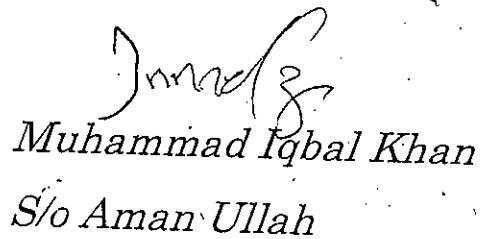 Muhammad Iqbal Khan
S/o Aman Ullah